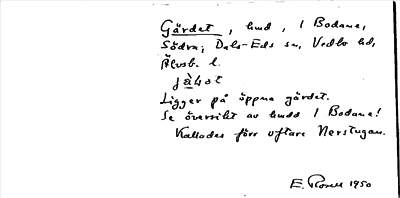 Gärdet, hmd, i Bodane,
Södra; Dals-Eds sn, Vedbo hd,
Älvsb. l.
Ligger på öppna gärdet.
Se översikt av hmdd i Bodane!
Kallades förr oftare Nerstugan.
E. Rosell 1950